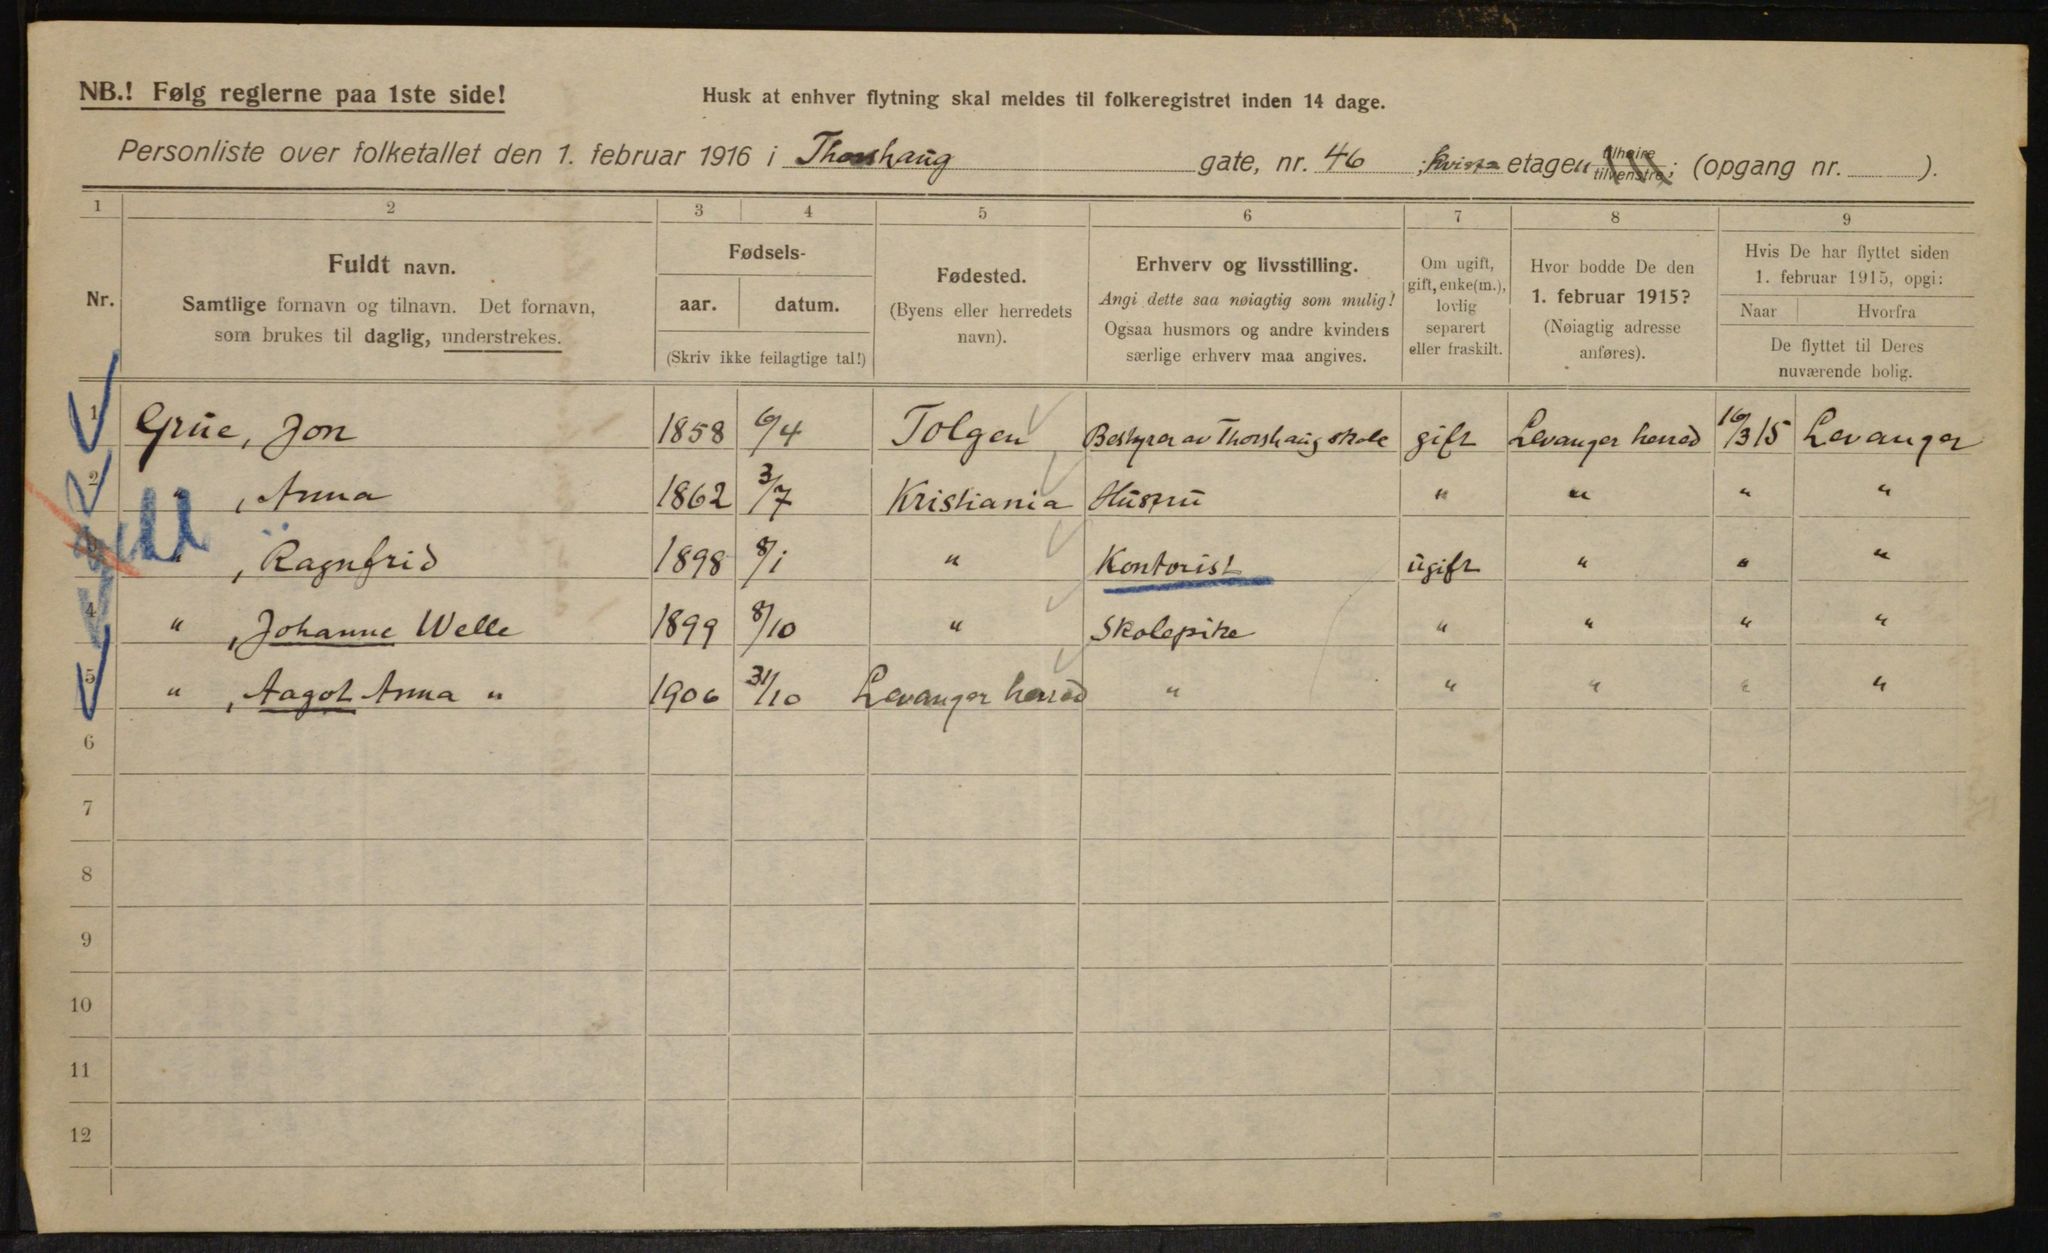 NB.! Følg reglerne paa 1ste side!
Husk at enhver flytning skal meldes til folkeregistret inden 14 dage.
Personliste over folketallet den 1. februar 1916 i Thorshaug gate, nr. 46 ; kvist etagen tilhøire tilvenstre; (opgang nr. ).
1 2 3 4 5 6 7 8 9
Nr.
Fuldt navn.
Samtlige fornavn og tilnavn. Det fornavn,
som brukes til daglig, understrekes.
Fødsels-
aar. datum.
(Skriv ikke feilagtige tal!)
Fødested.
(Byens eller herredets
navn).
Erhverv og livsstilling.
Angi dette saa nøiagtig som mulig!
Ogsaa husmors og andre kvinders
særlige erhverv maa angives.
Om ugift,
gift, enke(m.),
lovlig
separert
eller fraskilt.
Hvor bodde De den
1. februar 1915?
(Nøiagtig adresse
anføres).
Hvis De har flyttet siden
1. februar 1915, opgi:
Naar Hvorfra
De flyttet til Deres
nuværende bolig.
1 Grue, Jon 1858 6/4 Tolgen Bestyrer av Thorshaug skole gift Levanger herred 16/3 15 Levanger
2 " , Anna 1862 3/7 Kristiania Hustru " " " "
3 " , Ragnfrid 1898 8/1 " Kontorist ugift " " "
4 " , Johanne Welle 1899 8/10 " Skolepike " " " "
5 " , Aagot Anna " 1906 31/10 Levanger herred " " " " "
6
7
8
9
10
11
12